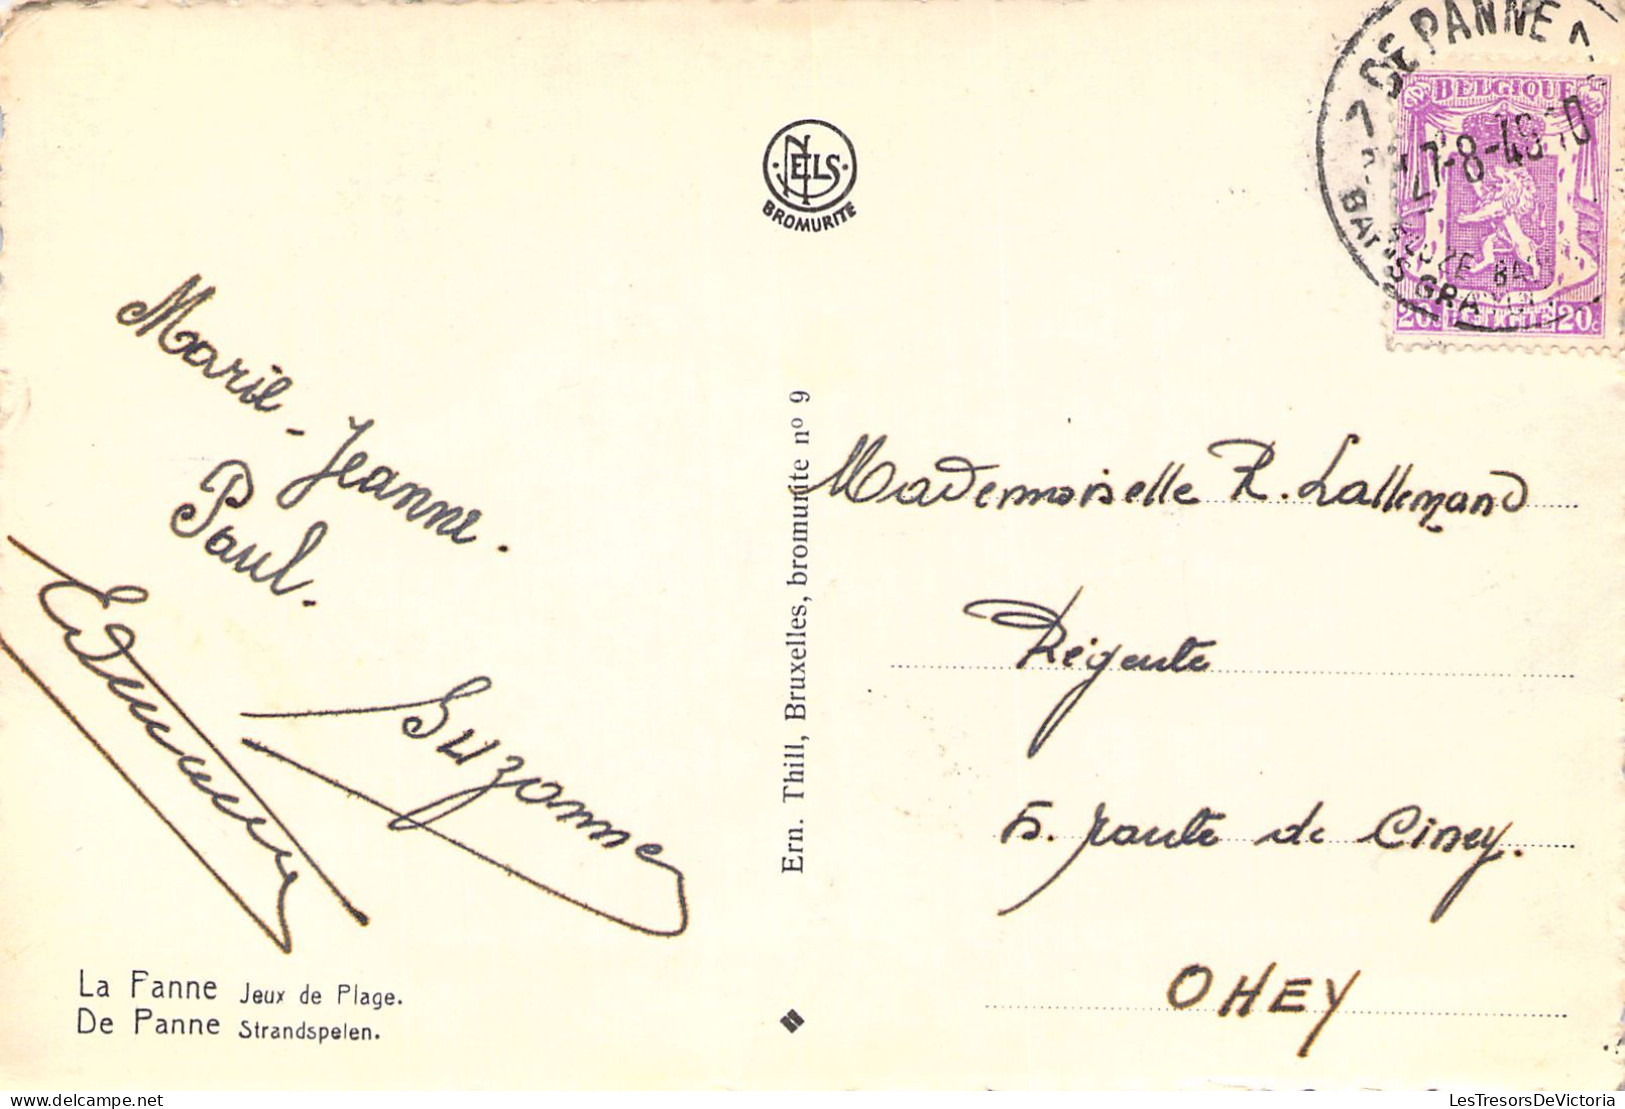 DE PANNE
BELGIQUE
27-8-49 10
20c 20c
NELS
BROMURITE
Marie-Jeanne.
Paul.
Suzanne
Ern. Thill, Bruxelles, bromurite nº 9
Mademoiselle R. Lallemand
Régente
5. route de Ciney.
OHEY
La Fanne Jeux de Plage.
De Panne Strandspelen.
LesTresorsDeVictoria